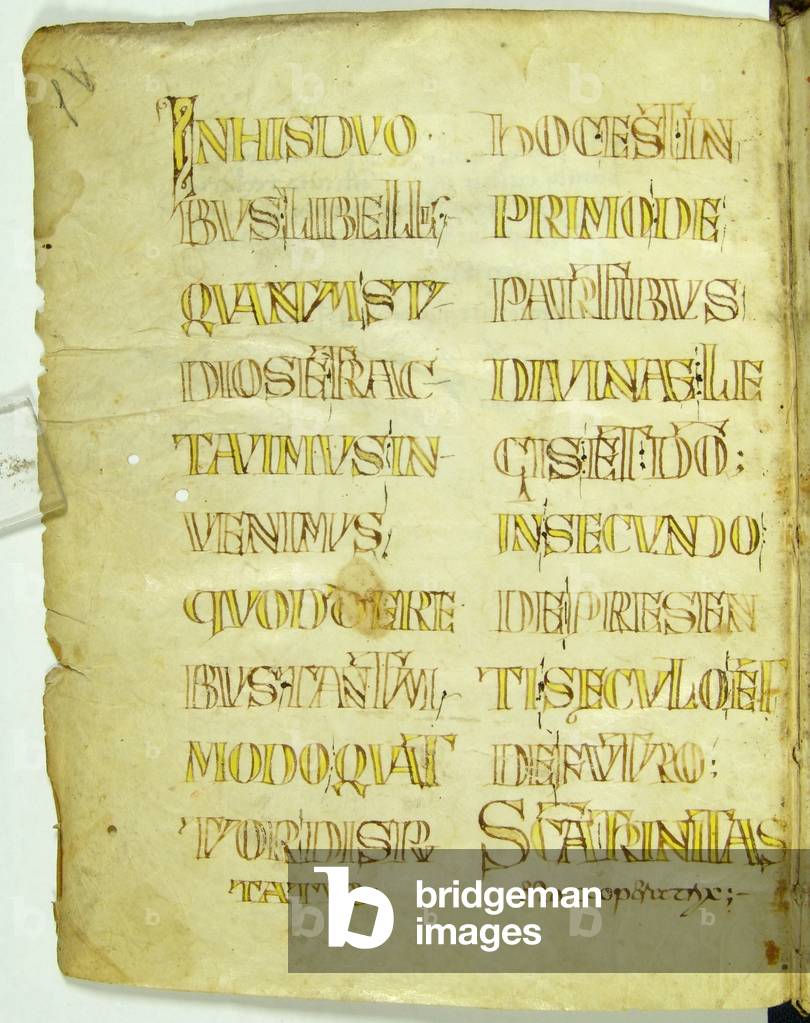 INHISDVO
BVS:LIBELLIS;
QVANTVMSTV
DIOSETRAC
TAVIMVSIN
VENIMVS;
BVSTANTVM
MODOQVAT
TVORDISP
TATVR
HOCESTIN
PRIMODE
PARTIBVS
DIVINAELE
GISETDO;
INSECVNDO
DEPRESEN
TISECVLOET
DEFVTVRO:
SCATRINITAS
bridgeman
images